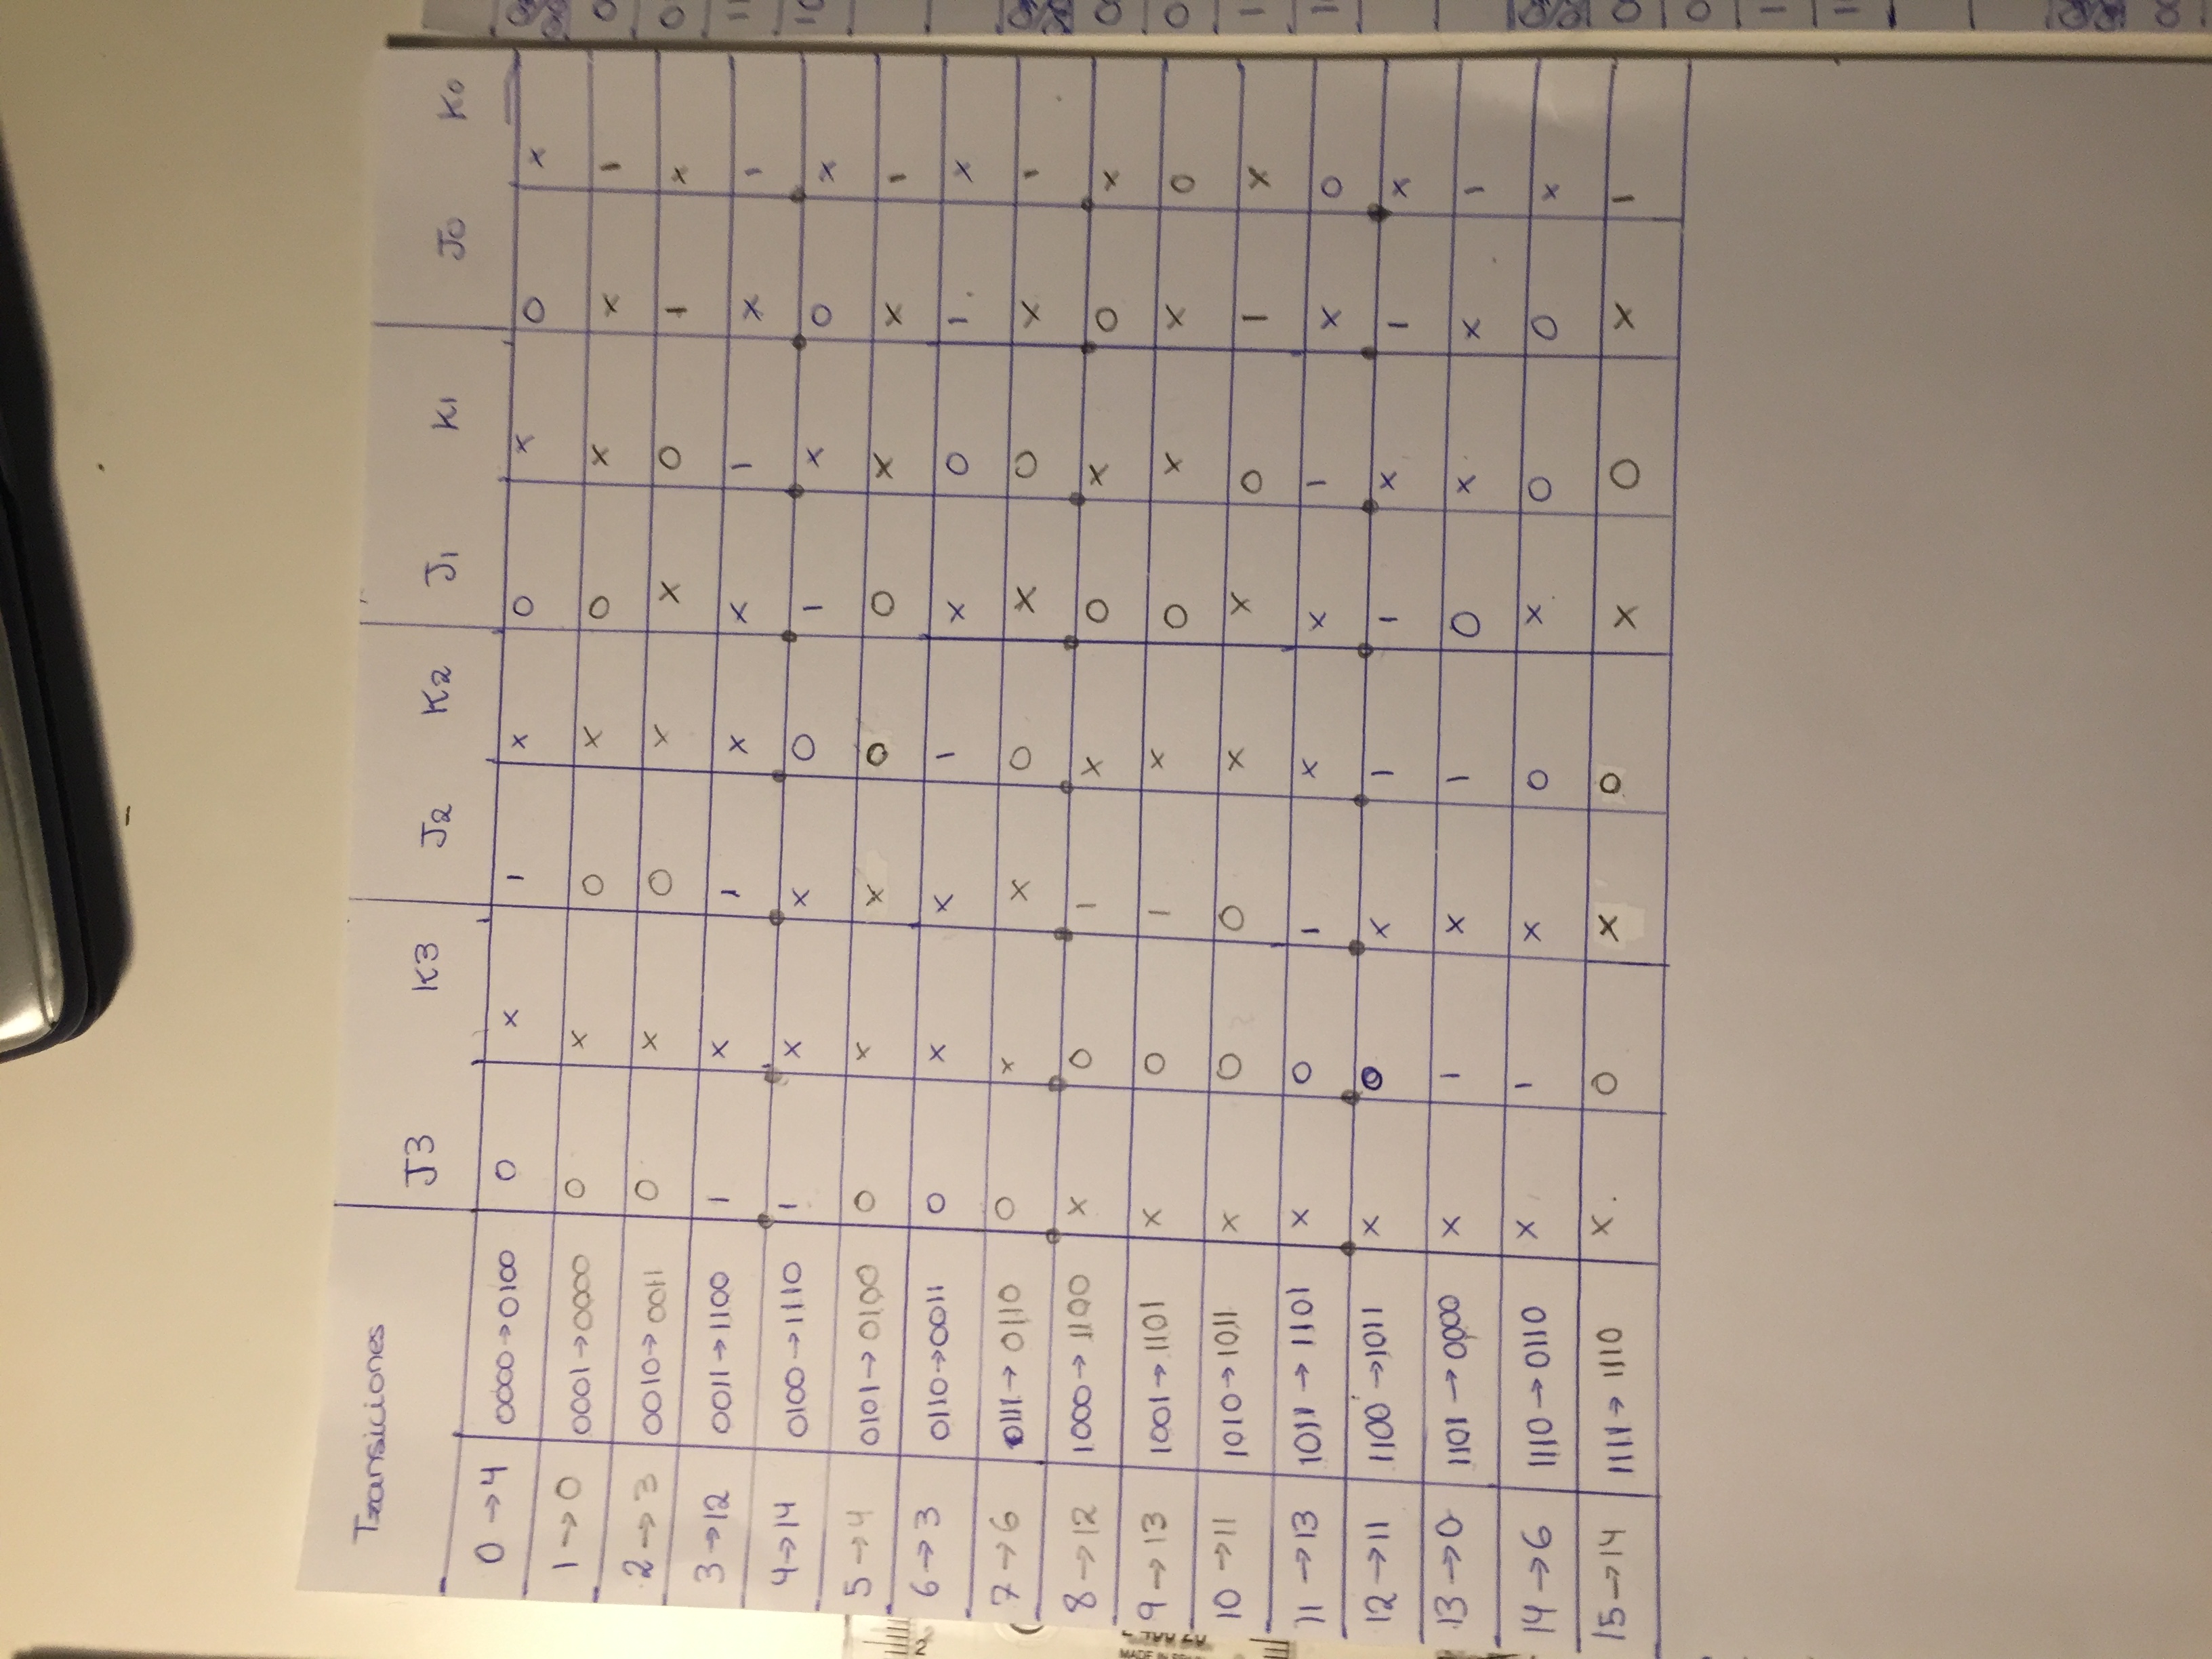 Transiciones J3 K3 J2 K2 J1 K1 J0 K0
0 → 4 0000 → 0100 0 x 1 x 0 x 0 x
1 → 0 0001 → 0000 0 x 0 x 0 x x 1
2 → 3 0010 → 0011 0 x 0 x x 0 1 x
3 → 12 0011 → 1100 1 x 1 x x 1 x 1
4 → 14 0100 → 1110 1 x x 0 1 x 0 x
5 → 4 0101 → 0100 0 x x 0 0 x x 1
6 → 3 0110 → 0011 0 x x 1 x 0 1 x
7 → 6 0111 → 0110 0 x x 0 x 0 x 1
8 → 12 1000 → 1100 x 0 1 x 0 x 0 x
9 → 13 1001 → 1101 x 0 1 x 0 x x 0
10 → 11 1010 → 1011 x 0 0 x x 0 1 x
11 → 13 1011 → 1101 x 0 1 x x 1 x 0
12 → 11 1100 → 1011 x 0 x 1 1 x 1 x
13 → 0 1101 → 0000 x 1 x 1 0 x x 1
14 → 6 1110 → 0110 x 1 x 0 x 0 0 x
15 → 14 1111 → 1110 x 0 x 0 x 0 x 1